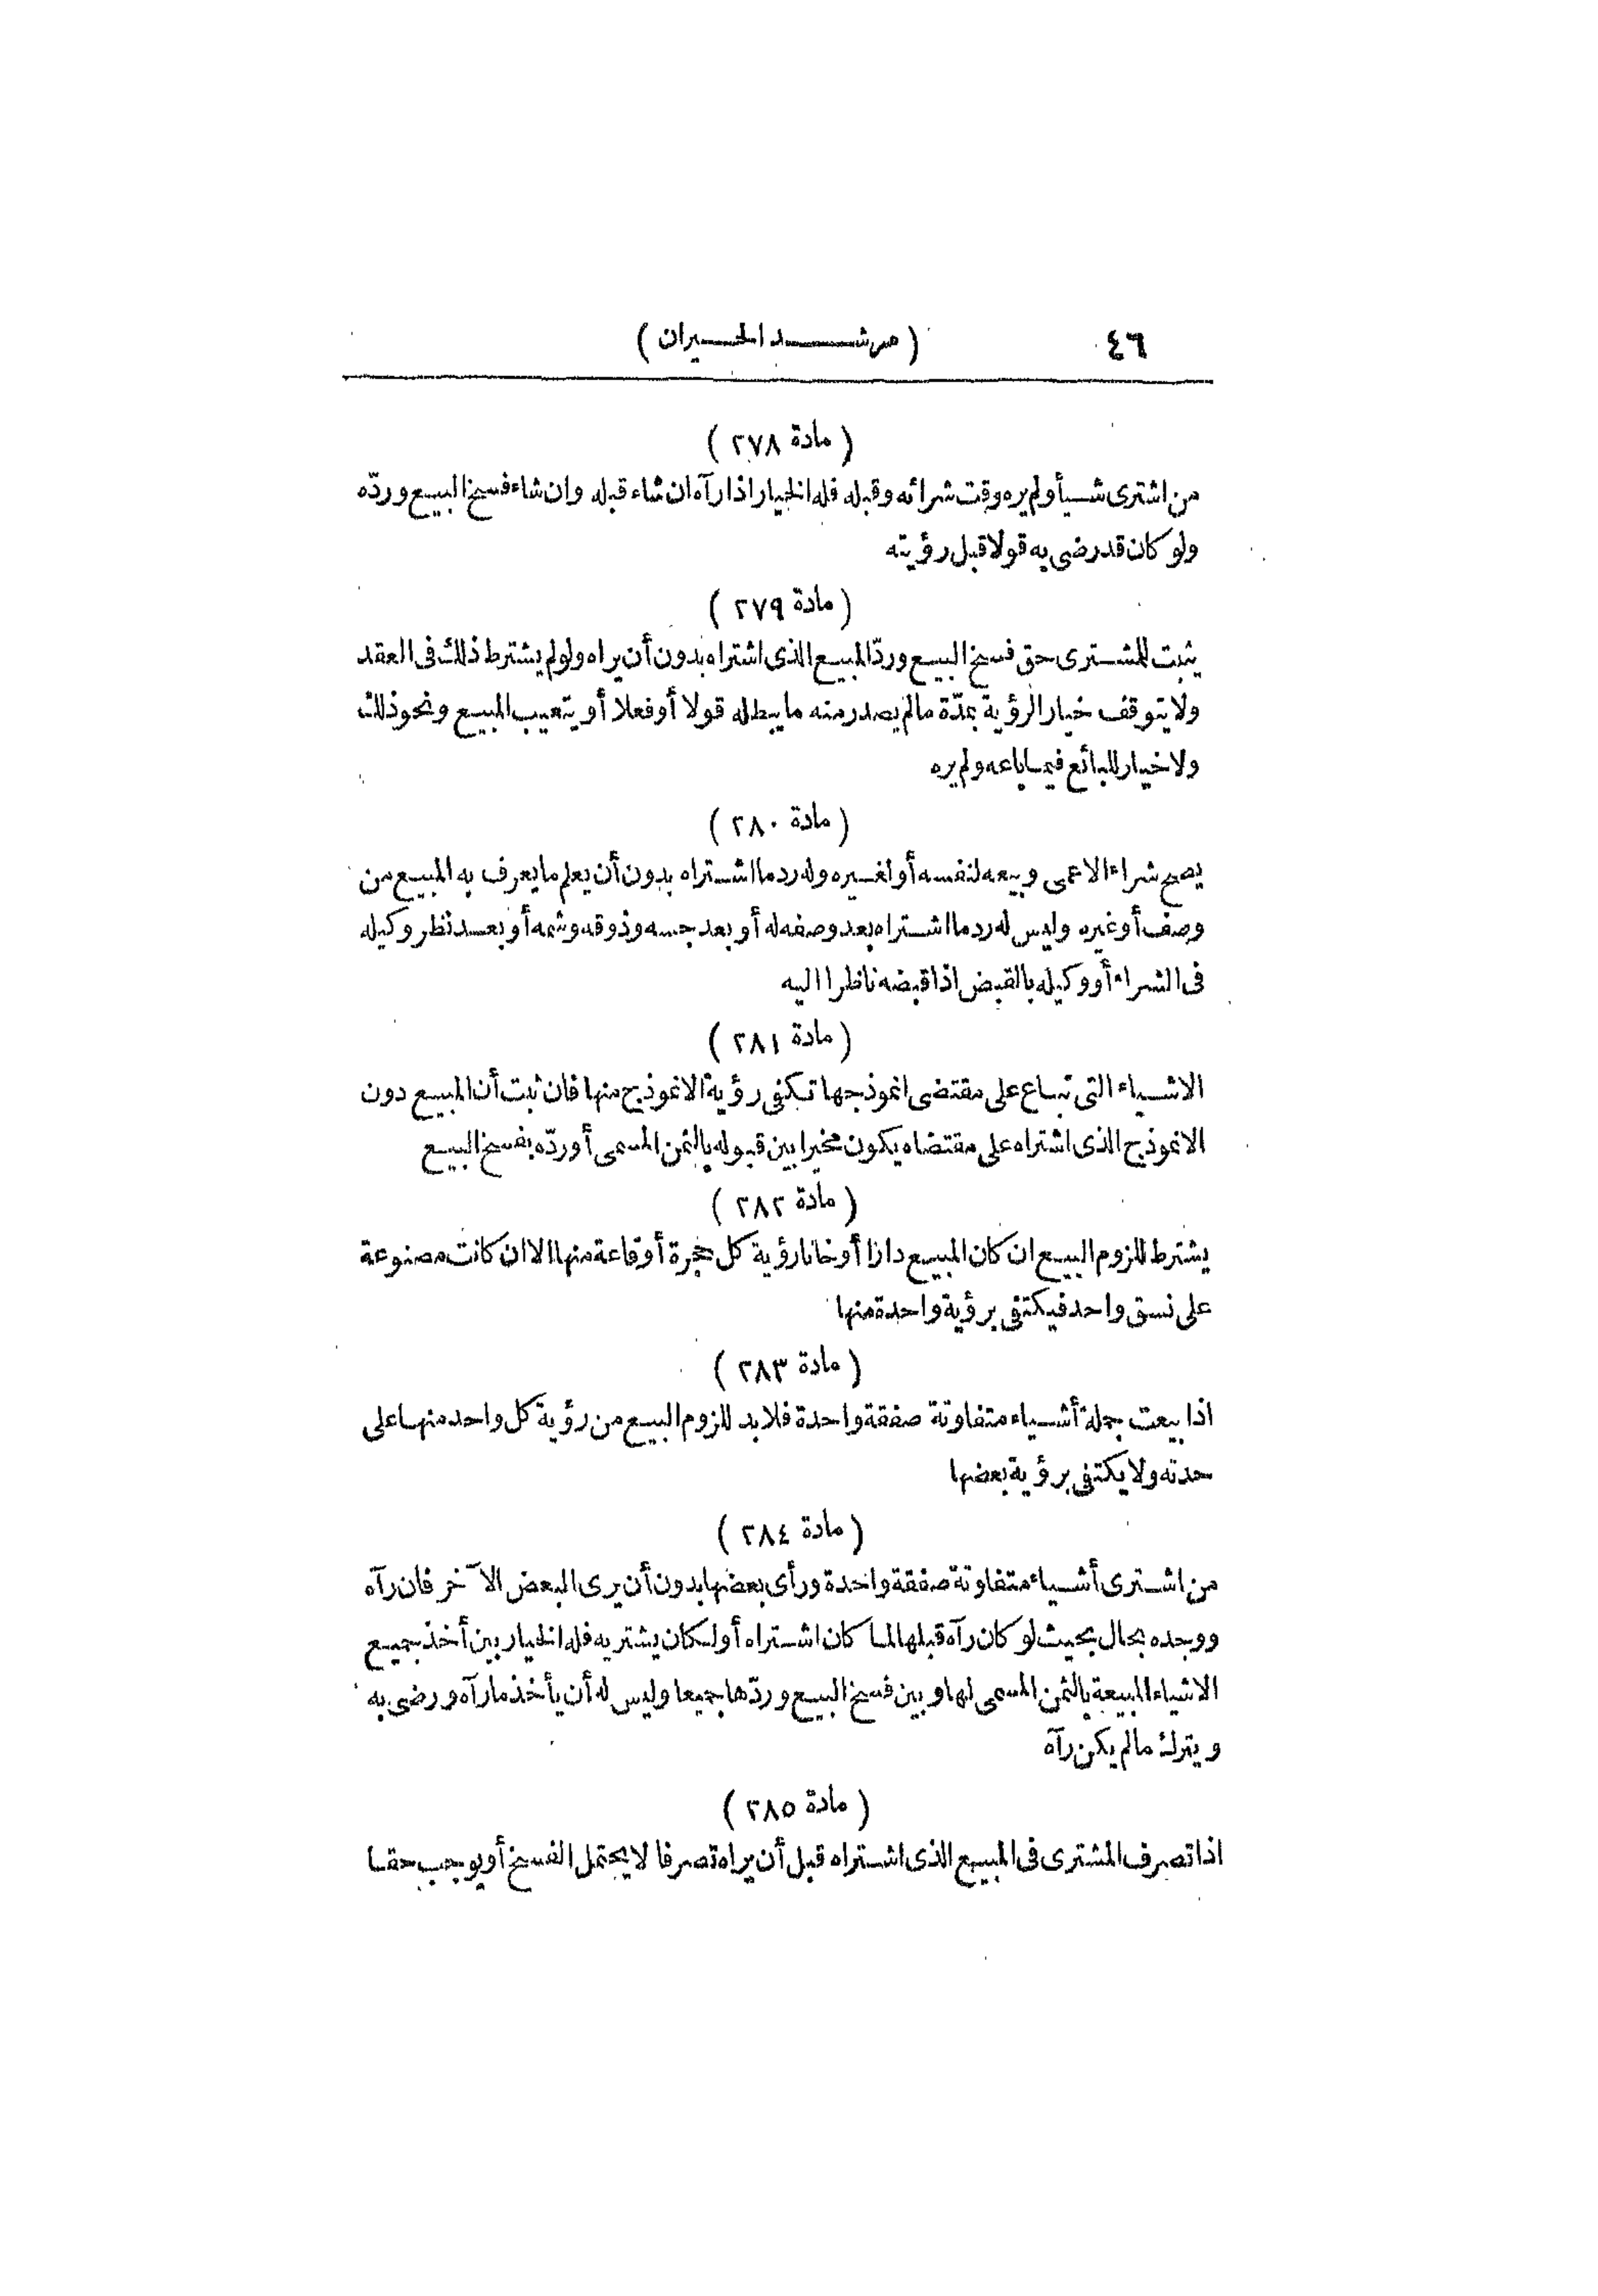 ٤٦ (مرشد الحيران)
(مادة ٢٧٨)
من اشترى شيأ ولم يره وقت شرائه وقبله فله الخيار اذا رآه ان شاء قبله وان شاء فسخ البيع وردّه
ولو كان قد رضى به قولا قبل رؤيته
(مادة ٢٧٩)
يثبت للمشترى حق فسخ البيع وردّ المبيع الذى اشتراه بدون أن يراه ولو لم يشترط ذلك فى العقد
ولا يتوقف خيار الرؤية بمدّة مالم يصدر منه ما يبطله قولا أو فعلا أو يتعيب المبيع ونحو ذلك
ولا خيار للبائع فيما باعه ولم يره
(مادة ٢٨٠)
يصح شراء الاعمى وبيعه لنفسه أو لغيره وله رد ما اشتراه بدون أن يعلم ما يعرف به المبيع من
وصف أو غيره وليس له رد ما اشتراه بعد وصفه له أو بعد جسه وذوقه وشمه أو بعد نظر وكيله
فى الشراء أو وكيله بالقبض اذا قبضه ناظرا اليه
(مادة ٢٨١)
الاشياء التى تباع على مقتضى انموذجها تكفى رؤية الانموذج منها فان ثبت أن المبيع دون
الانموذج الذى اشتراه على مقتضاه يكون مخيرا بين قبوله بالثمن المسمى أو ردّه بفسخ البيع
(مادة ٢٨٢)
يشترط للزوم البيع ان كان المبيع دارا أو خانا رؤية كل حجرة أو قاعة منها الا ان كانت مصنوعة
على نسق واحد فيكتفى برؤية واحدة منها
(مادة ٢٨٣)
اذا بيعت جملة أشياء متفاوتة صفقة واحدة فلا بد للزوم البيع من رؤية كل واحد منها على
حدته ولا يكتفى برؤية بعضها
(مادة ٢٨٤)
من اشترى أشياء متفاوتة صفقة واحدة ورأى بعضها بدون أن يرى البعض الآخر فان رآه
ووجده بحال بحيث لو كان رآه قبلها لما كان اشتراه أو لكان يشتريه فله الخيار بين أخذ جميع
الاشياء المبيعة بالثمن المسمى لها وبين فسخ البيع وردّها جميعا وليس له أن يأخذ ما رآه ورضى به
ويترك مالم يكن رآه
(مادة ٢٨٥)
اذا تصرف المشترى فى المبيع الذى اشتراه قبل أن يراه تصرفا لا يحتمل الفسخ أو يوجب حقا